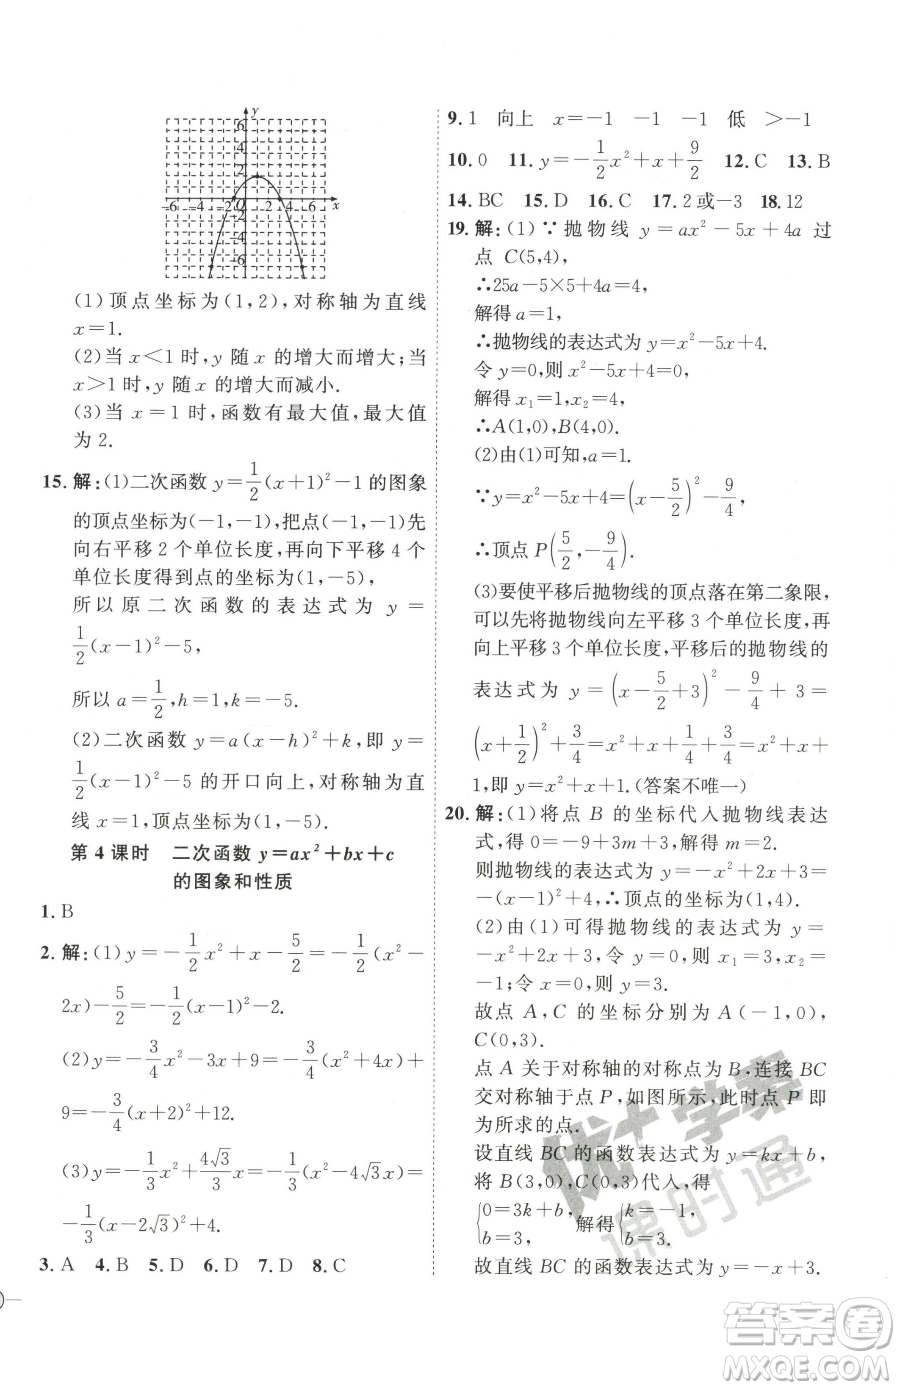 y
6
4
2
-6 -4 -2 O 2 4 6 x
-2
-4
-6
(1)顶点坐标为(1,2),对称轴为直线
x=1.
(2)当 x<1 时,y 随 x 的增大而增大;当
x>1 时,y 随 x 的增大而减小.
(3)当 x=1 时,函数有最大值,最大值
为 2.
15.解:(1)二次函数 y=1/2(x+1)²-1 的图象
的顶点坐标为(-1,-1),把点(-1,-1)先
向右平移 2 个单位长度,再向下平移 4 个
单位长度得到点的坐标为(1,-5),
所以原二次函数的表达式为 y=
1/2(x-1)²-5,
所以 a=1/2,h=1,k=-5.
(2)二次函数 y=a(x-h)²+k,即 y=
1/2(x-1)²-5 的开口向上,对称轴为直
线 x=1,顶点坐标为(1,-5).
第 4 课时 二次函数 y=ax²+bx+c
的图象和性质
1.B
2.解:(1)y=-1/2x²+x-5/2=-1/2(x²-
2x)-5/2=-1/2(x-1)²-2.
(2)y=-3/4x²-3x+9=-3/4(x²+4x)+
9=-3/4(x+2)²+12.
(3)y=-1/3x²+4√3/3x=-1/3(x²-4√3x)=
-1/3(x-2√3)²+4.
3.A 4.B 5.D 6.D 7.D 8.C
9.1 向上 x=-1 -1 -1 低 >-1
10.0 11.y=-1/2x²+x+9/2 12.C 13.B
14.BC 15.D 16.C 17.2或-3 18.12
19.解:(1)∵抛物线 y=ax²-5x+4a 过
点 C(5,4),
∴25a-5×5+4a=4,
解得 a=1,
∴抛物线的表达式为 y=x²-5x+4.
令 y=0,则 x²-5x+4=0,
解得 x₁=1,x₂=4,
∴A(1,0),B(4,0).
(2)由(1)可知,a=1.
∵y=x²-5x+4=(x-5/2)²-9/4,
∴顶点 P(5/2,-9/4).
(3)要使平移后抛物线的顶点落在第二象限,
可以先将抛物线向左平移 3 个单位长度,再
向上平移 3 个单位长度,则平移后抛物线的
表达式为 y=(x-5/2+3)²-9/4+3=
(x+1/2)²+3/4=x²+x+1/4+3/4=x²+x+
1,即 y=x²+x+1.(答案不唯一)
20.解:(1)将点 B 的坐标代入抛物线表达
式,得 0=-9+3m+3,解得 m=2.
则抛物线的表达式为 y=-x²+2x+3=
-(x-1)²+4,∴顶点的坐标为(1,4).
(2)由(1)可得抛物线的表达式为 y=
-x²+2x+3,令 y=0,则 x₁=3,x₂=
-1;令 x=0,则 y=3.
故点 A,C 的坐标分别为 A(-1,0),
C(0,3).
点 A 关于对称轴的对称点为 B,连接 BC
交对称轴于点 P,如图所示,此时点 P 即
为所求的点.
设直线 BC 的函数表达式为 y=kx+b,
将 B(3,0),C(0,3)代入,得
{0=3k+b, b=3. 解得{k=-1, b=3.
故直线 BC 的函数表达式为 y=-x+3.
优+学案
课时通
答案圈
MXQE.COM